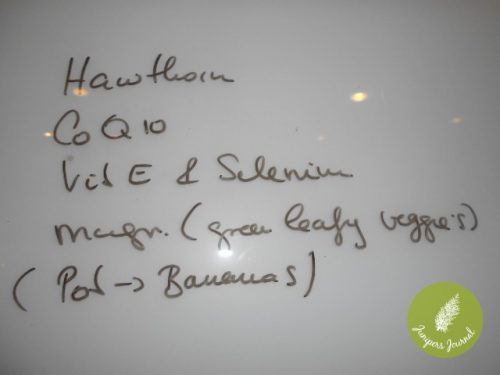 Hawthorn
CoQ10
Vit E & Selenium
magn. (green leafy veggie's)
(Pot -> Bananas)
Junipers Journal